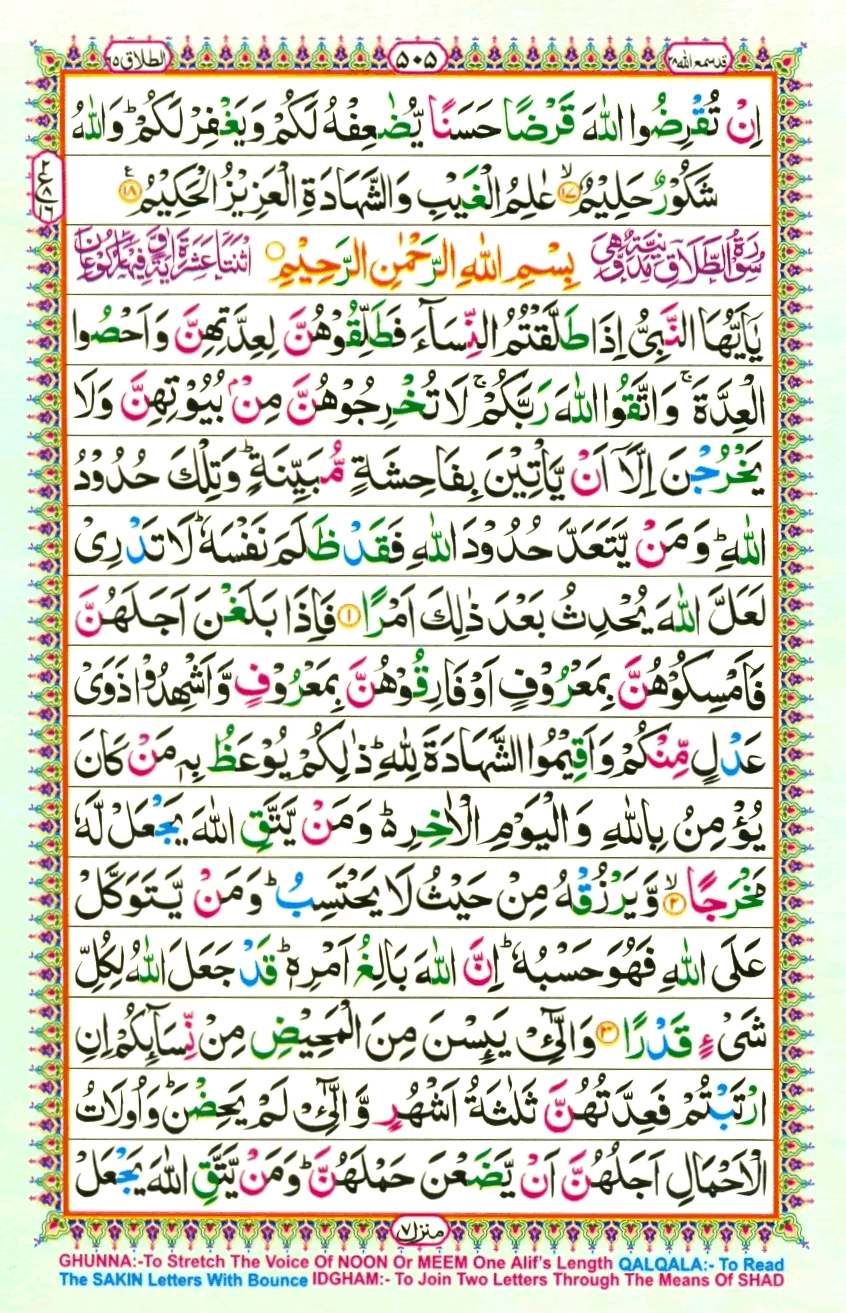 قد سمع الله ٢٨
٥٠٥
الطلاق ٦٥
اِنْ تُقْرِضُوا اللّٰهَ قَرْضًا حَسَنًا يُّضٰعِفْهُ لَكُمْ وَيَغْفِرْ لَكُمْ ؕ وَاللّٰهُ
شَكُوْرٌ حَلِيْمٌ ۙ‏﴿۱۷﴾ عٰلِمُ الْغَيْبِ وَالشَّهَادَةِ الْعَزِيْزُ الْحَكِيْمُ ﴿۱۸﴾
٢
ع
٨
١٦
سُوْرَةُ الطَّلَاقِ مَدَنِيَّةٌ وَّهِىَ بِسْمِ اللّٰهِ الرَّحْمٰنِ الرَّحِيْمِ اثْنَتَا عَشْرَةَ اٰيَةً وَّفِيْهَا رُكُوْعَانِ
يٰۤاَيُّهَا النَّبِىُّ اِذَا طَلَّقْتُمُ النِّسَآءَ فَطَلِّقُوْهُنَّ لِعِدَّتِهِنَّ وَاَحْصُوا
الْعِدَّةَ ۚ وَاتَّقُوا اللّٰهَ رَبَّكُمْ ۚ لَا تُخْرِجُوْهُنَّ مِنْۢ بُيُوْتِهِنَّ وَلَا
يَخْرُجْنَ اِلَّاۤ اَنْ يَّاْتِيْنَ بِفَاحِشَةٍ مُّبَيِّنَةٍ ؕ وَتِلْكَ حُدُوْدُ
اللّٰهِ ؕ وَمَنْ يَّتَعَدَّ حُدُوْدَ اللّٰهِ فَقَدْ ظَلَمَ نَفْسَهٗ ؕ لَا تَدْرِىْ
لَعَلَّ اللّٰهَ يُحْدِثُ بَعْدَ ذٰلِكَ اَمْرًا ﴿۱﴾ فَاِذَا بَلَغْنَ اَجَلَهُنَّ
فَاَمْسِكُوْهُنَّ بِمَعْرُوْفٍ اَوْ فَارِقُوْهُنَّ بِمَعْرُوْفٍ وَّاَشْهِدُوْا ذَوَىْ
عَدْلٍ مِّنْكُمْ وَاَقِيْمُوا الشَّهَادَةَ لِلّٰهِ ؕ ذٰلِكُمْ يُوْعَظُ بِهٖ مَنْ كَانَ
يُؤْمِنُ بِاللّٰهِ وَالْيَوْمِ الْاٰخِرِ ؕ۬ وَمَنْ يَّتَّقِ اللّٰهَ يَجْعَلْ لَّهٗ
مَخْرَجًا ۙ‏﴿۲﴾ وَّيَرْزُقْهُ مِنْ حَيْثُ لَا يَحْتَسِبُ ؕ وَمَنْ يَّتَوَكَّلْ
عَلَى اللّٰهِ فَهُوَ حَسْبُهٗ ؕ اِنَّ اللّٰهَ بَالِغُ اَمْرِهٖ ؕ قَدْ جَعَلَ اللّٰهُ لِكُلِّ
شَىْءٍ قَدْرًا ﴿۳﴾ وَالّٰٓـىِٔـىْ يَٮِٕسْنَ مِنَ الْمَحِيْضِ مِنْ نِّسَآٮِٕكُمْ اِنِ
ارْتَبْتُمْ فَعِدَّتُهُنَّ ثَلٰثَةُ اَشْهُرٍ وَّالّٰٓـىِٔـىْ لَمْ يَحِضْنَ ؕ وَاُولَاتُ
الْاَحْمَالِ اَجَلُهُنَّ اَنْ يَّضَعْنَ حَمْلَهُنَّ ؕ وَمَنْ يَّتَّقِ اللّٰهَ يَجْعَلْ
منزل ٧
GHUNNA:-To Stretch The Voice Of NOON Or MEEM One Alif's Length QALQALA:- To Read
The SAKIN Letters With Bounce IDGHAM:- To Join Two Letters Through The Means Of SHAD